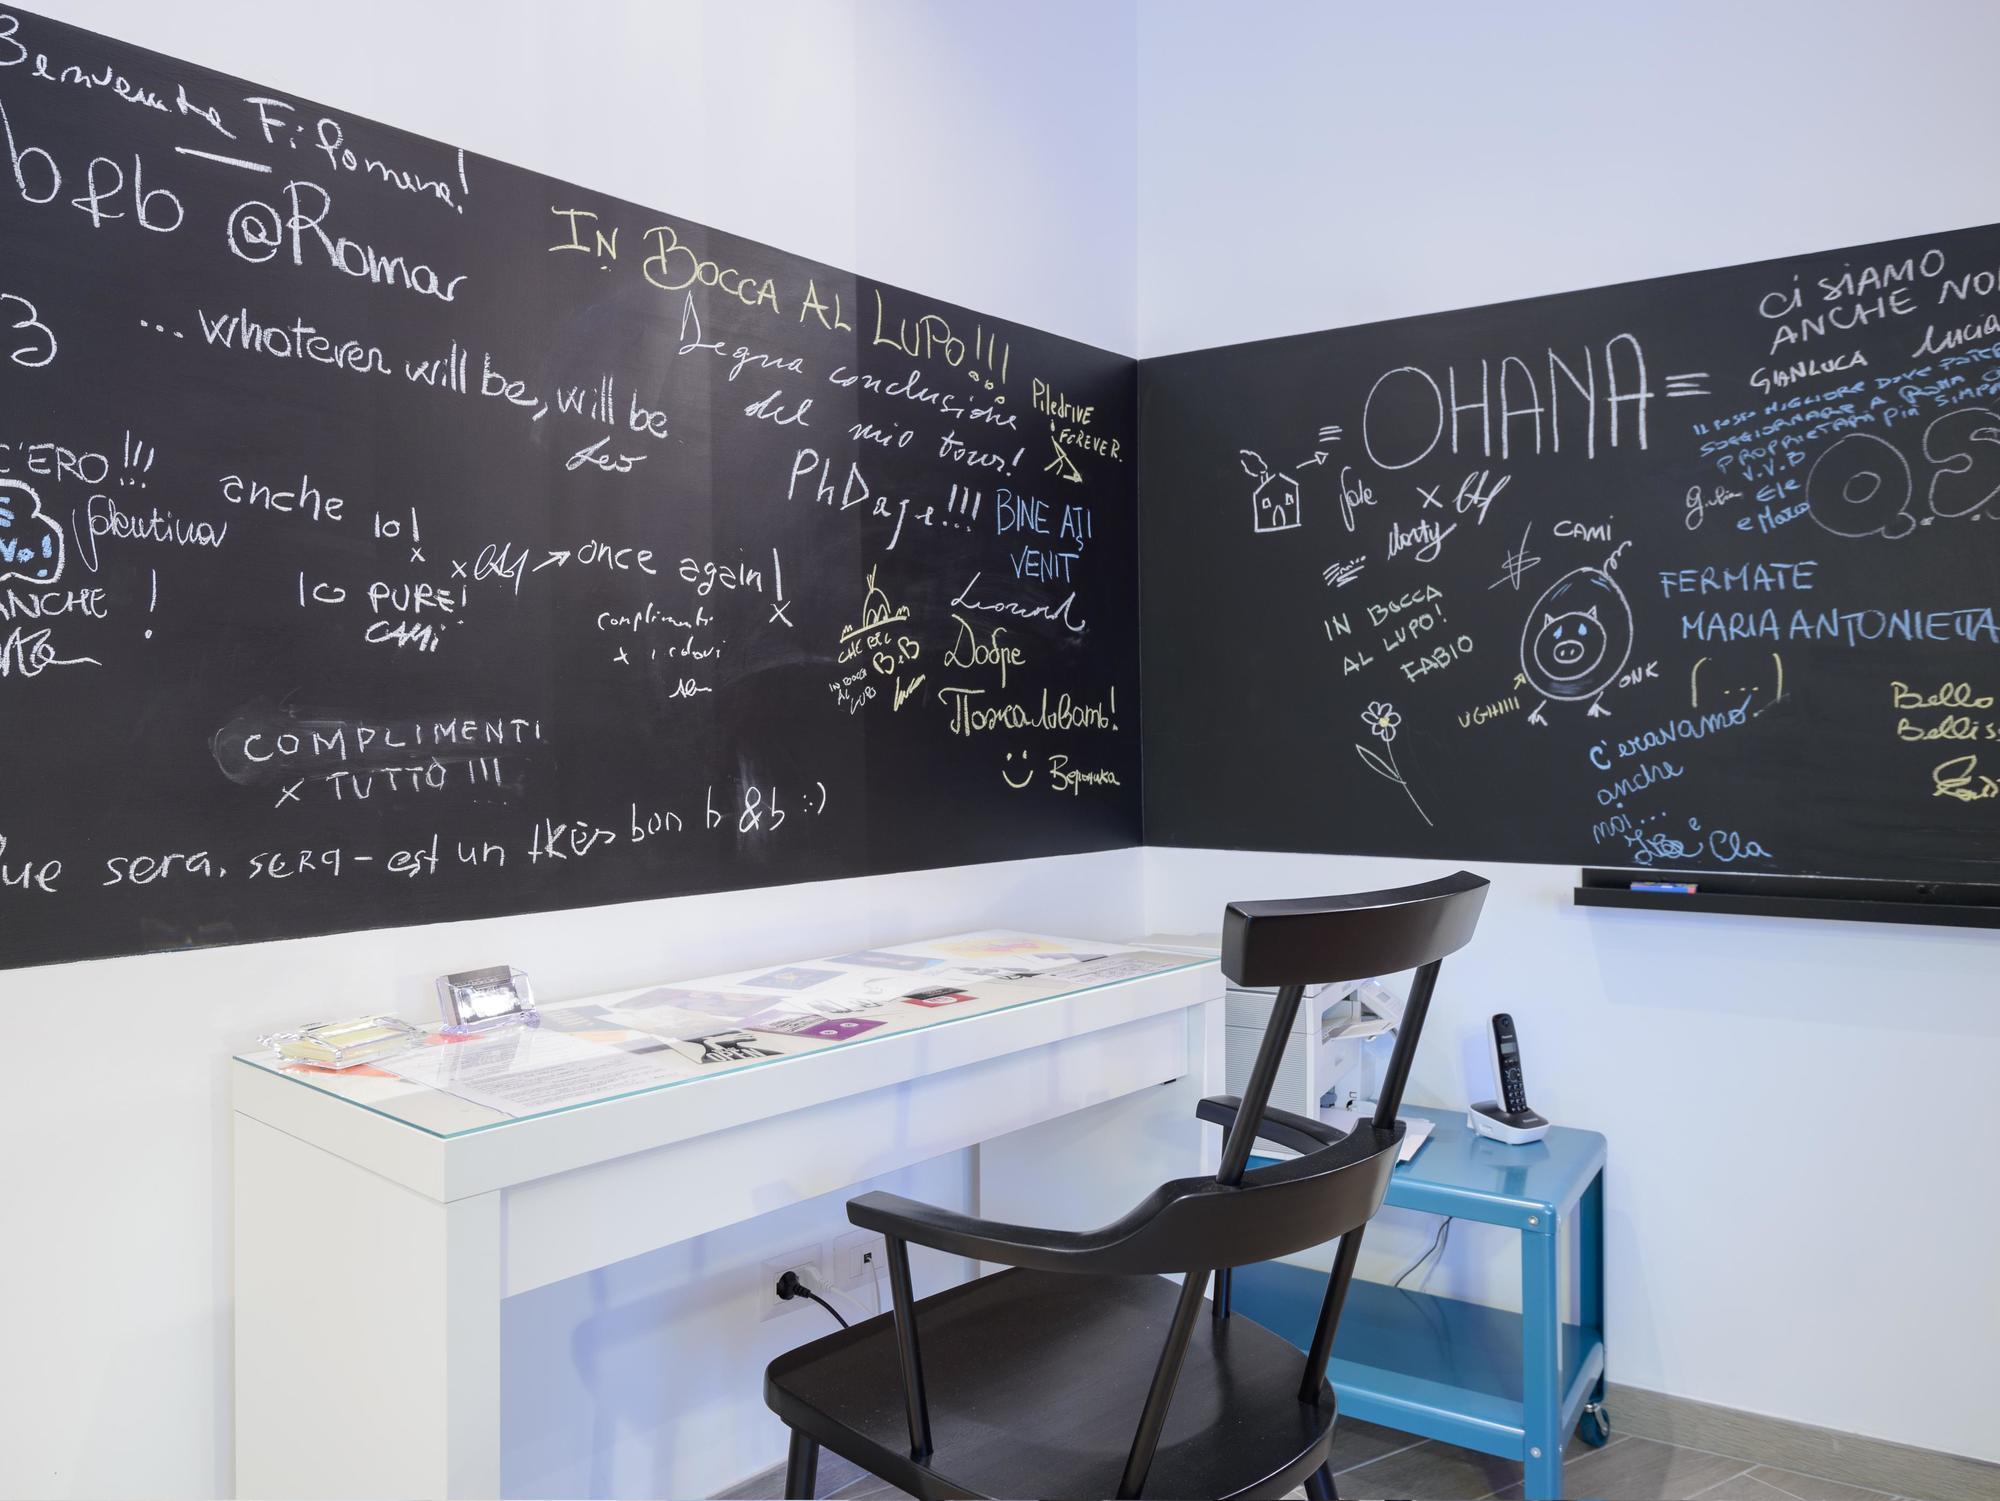 Benvenute Filomena!
b&b @Romar
3
...whatever will be, will be
Leo
C'ERO!!!
Valentina
ANCHE
!
anche io!
x
IO PURE!
CAMI
x
once again!
x
complimenti
x i
COMPLIMENTI
x TUTTO !!!
ue sera, sera - est un tRès bon b &b :)
IN BOCCA AL LUPO!!!
Degna conclusione
del mio tour!
PhDage!!!
Piledrive
FOREVER.
BINE AȚI
VENIT
CHE BEL
B&B
IN BOCCA
AL
LUPO
Добре
Пожаловать!
Вероника
= OHANA =
x
IN BOCCA
AL LUPO!
FABIO
CAMI
UGHIIII
ONK
CI SIAMO
ANCHE NOI
GIANLUCA
Lucia
IL POSTO MIGLIORE DOVE POTER
SOGGIORNARE A ROMA
PROPRIETARI PIÙ SIMPA
V.V.B
Giulia
Ele
e Marco
FERMATE
MARIA ANTONIETTA
(...)
c'eravamo
anche
noi...
e Cla
Bello
Belliss
OPEN
Panasonic